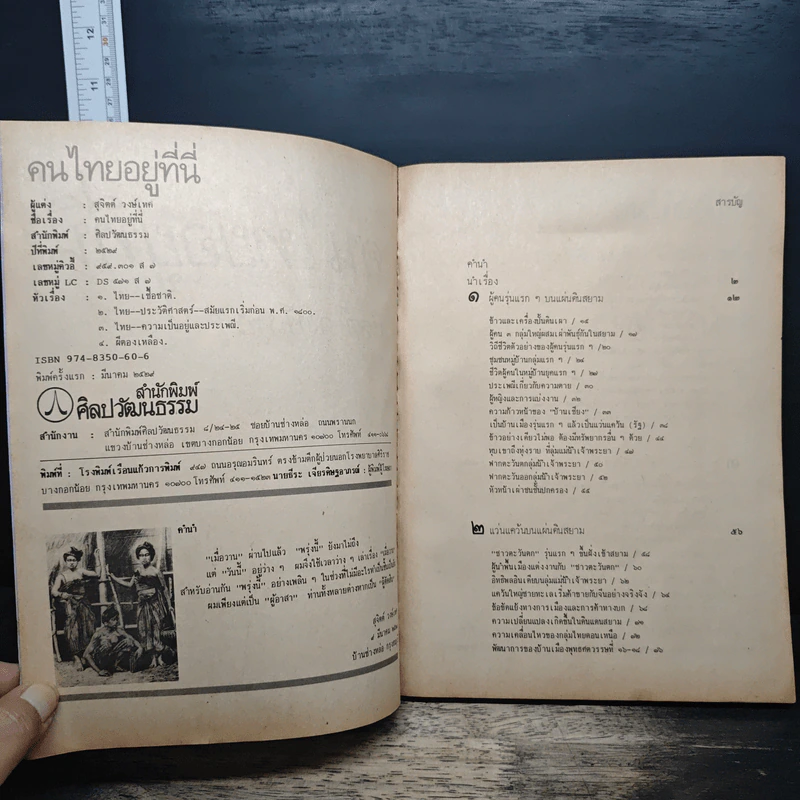 คนไทยอยู่ที่นี่
ผู้แต่ง : สุจิตต์ วงษ์เทศ
ชื่อเรื่อง : คนไทยอยู่ที่นี่
สำนักพิมพ์ : ศิลปวัฒนธรรม
ปีที่พิมพ์ : ๒๕๒๙
เลขหมู่ดิวอี้ : ๙๕๙.๓๐๑ สี ๗
เลขหมู่ LC : DS ๕๗๑ สี ๗
หัวเรื่อง : ๑. ไทย--เชื้อชาติ.
๒. ไทย--ประวัติศาสตร์--สมัยแรกเริ่มก่อน พ.ศ. ๑๘๐๐.
๓. ไทย--ความเป็นอยู่และประเพณี.
๔. ผีตองเหลือง.
ISBN 974-8350-60-6
พิมพ์ครั้งแรก : มีนาคม ๒๕๒๙
สำนักพิมพ์
ศิลปวัฒนธรรม
สำนักงาน : สำนักพิมพ์ศิลปวัฒนธรรม ๘/๒๔-๒๕ ซอยบ้านช่างหล่อ ถนนพรานนก
แขวงบ้านช่างหล่อ เขตบางกอกน้อย กรุงเทพมหานคร ๑๐๗๐๐ โทรศัพท์
พิมพ์ที่ : โรงพิมพ์เรือนแก้วการพิมพ์ ๙๔๗ ถนนอรุณอมรินทร์ ตรงข้ามตึกผู้ป่วยนอกโรงพยาบาลศิริราช
บางกอกน้อย กรุงเทพมหานคร ๑๐๗๐๐ โทรศัพท์ ๔๑๑-๑๕๒๓ นายธีระ เจียรดิษฐอาภรณ์ : ผู้พิมพ์ผู้โฆษณา
คำนำ
"เมื่อวาน" ผ่านไปแล้ว "พรุ่งนี้" ยังมาไม่ถึง
แต่ "วันนี้" อยู่ว่าง ๆ ผมจึงใช้เวลาว่าง ๆ เล่าเรื่อง
สำหรับอ่านกัน "พรุ่งนี้" อย่างเพลิน ๆ ในช่วงที่ไม่มีอะไรทำ
ผมเพียงแต่เป็น "ผู้อาสา" ท่านทั้งหลายต่างหากเป็น
สุจิตต์
๘ มีนาคม
บ้านช่างหล่อ
สารบัญ
คำนำ
นำเรื่อง ๓
๑ ผู้คนรุ่นแรก ๆ บนแผ่นดินสยาม ๑๓
ข้าวและเครื่องปั้นดินเผา / ๑๕
ผู้คน ๓ กลุ่มใหญ่ผสมเผ่าพันธุ์กันในสยาม / ๑๗
วิถีชีวิตตัวอย่างของผู้คนรุ่นแรก ๆ /๒๐
ชุมชนหมู่บ้านกลุ่มแรก ๆ / ๒๔
ชีวิตผู้คนในหมู่บ้านยุคแรก ๆ / ๒๗
ประเพณีเกี่ยวกับความตาย / ๓๐
ผู้หญิงและการแบ่งงาน / ๓๒
ความก้าวหน้าของ "บ้านเชียง" / ๓๓
เป็นบ้านเมืองรุ่นแรก ๆ แล้วเป็นแว่นแคว้น (รัฐ) / ๓๔
ข้าวอย่างเดียวไม่พอ ต้องมีทรัพยากรอื่น ๆ ด้วย / ๔๔
หุบเขาถึงทุ่งราบ ที่ลุ่มแม่น้ำเจ้าพระยา / ๔๗
ฟากตะวันตกลุ่มน้ำเจ้าพระยา / ๕๐
ฟากตะวันออกลุ่มน้ำเจ้าพระยา / ๕๔
หัวหน้าเผ่าชนชั้นปกครอง / ๕๕
๒ แว่นแคว้นบนแผ่นดินสยาม ๕๖
"ชาวตะวันตก" รุ่นแรก ๆ ขึ้นฝั่งเข้าสยาม / ๕๘
ผู้นำพื้นเมืองแต่งงานกับ "ชาวตะวันตก" / ๖๐
อิทธิพลอินเดียบนลุ่มแม่น้ำเจ้าพระยา / ๖๒
แคว้นใหญ่ชายทะเลเริ่มค้าขายกับจีนอย่างจริงจัง / ๖๔
ข้อขัดแย้งทางการเมืองและการค้าทางบก / ๖๘
ความเปลี่ยนแปลงเกิดขึ้นในดินแดนสยาม / ๗๑
ความเคลื่อนไหวของกลุ่มไทยตอนเหนือ / ๗๓
พัฒนาการของบ้านเมืองพุทธศตวรรษที่ ๑๖-๑๘ / ๗๖